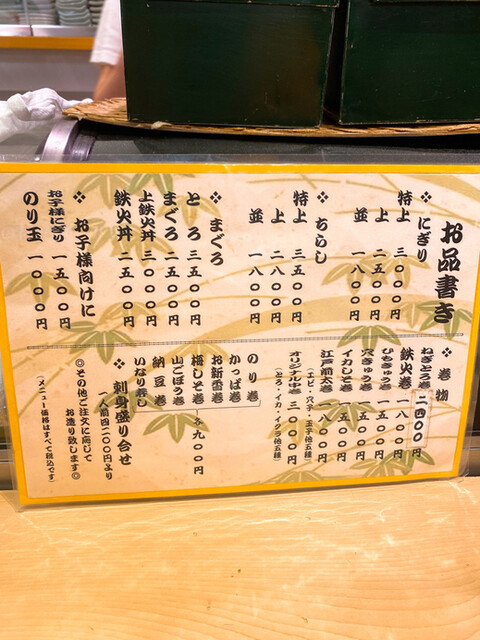 お品書き
❖にぎり
特上 三〇〇〇円
上 二五〇〇円
並 一八〇〇円
❖ちらし
特上 三五〇〇円
上 二八〇〇円
並 一八〇〇円
❖まぐろ
とろ 三五〇〇円
まぐろ 二五〇〇円
上鉄火丼 三〇〇〇円
鉄火丼 二五〇〇円
❖お子様向けに
お子様にぎり 一五〇〇円
のり玉 一〇〇〇円
❖巻物
ねぎとろ巻 二四〇〇円
鉄火巻 一八〇〇円
ひもきゅう巻 一五〇〇円
穴きゅう巻 一五〇〇円
イカしそ巻 一五〇〇円
江戸前太巻 一八〇〇円
(エビ・穴子・玉子他五種)
オリジナル中巻 三〇〇〇円
(とろ・イカ・イクラ他五種)
のり巻
かっぱ巻
お新香巻
梅しそ巻 各九〇〇円
山ごぼう巻
納豆巻
いなり寿し
❖刺身盛り合せ
一人前四二〇〇円より
◎その他ご注文に応じて
お造り致します◎
(メニュー価格はすべて税込です)